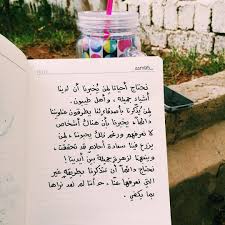 نحتاج أحياناً لمن يُخبرنا أن لدينا
أشياء جميلة، وأهل طيبون.
لمن يُذكّرنا بأصدقائنا القريبون لقلوبنا
دائماً، يخبرنا بأن هناك أشخاص
لا نعرفهم ورغم ذلك يُحبونا، لمن
يزرع فينا سعادة أحلامٍ قد تحققت،
ويُنبهنا لزهرةٍ جميلة بين أيدينا!
نحتاج دائماً أن تُذكرونا بطريقة غير
التي نعرفها عنّا، حيث أننا لم نعد نراها
بما يكفي.